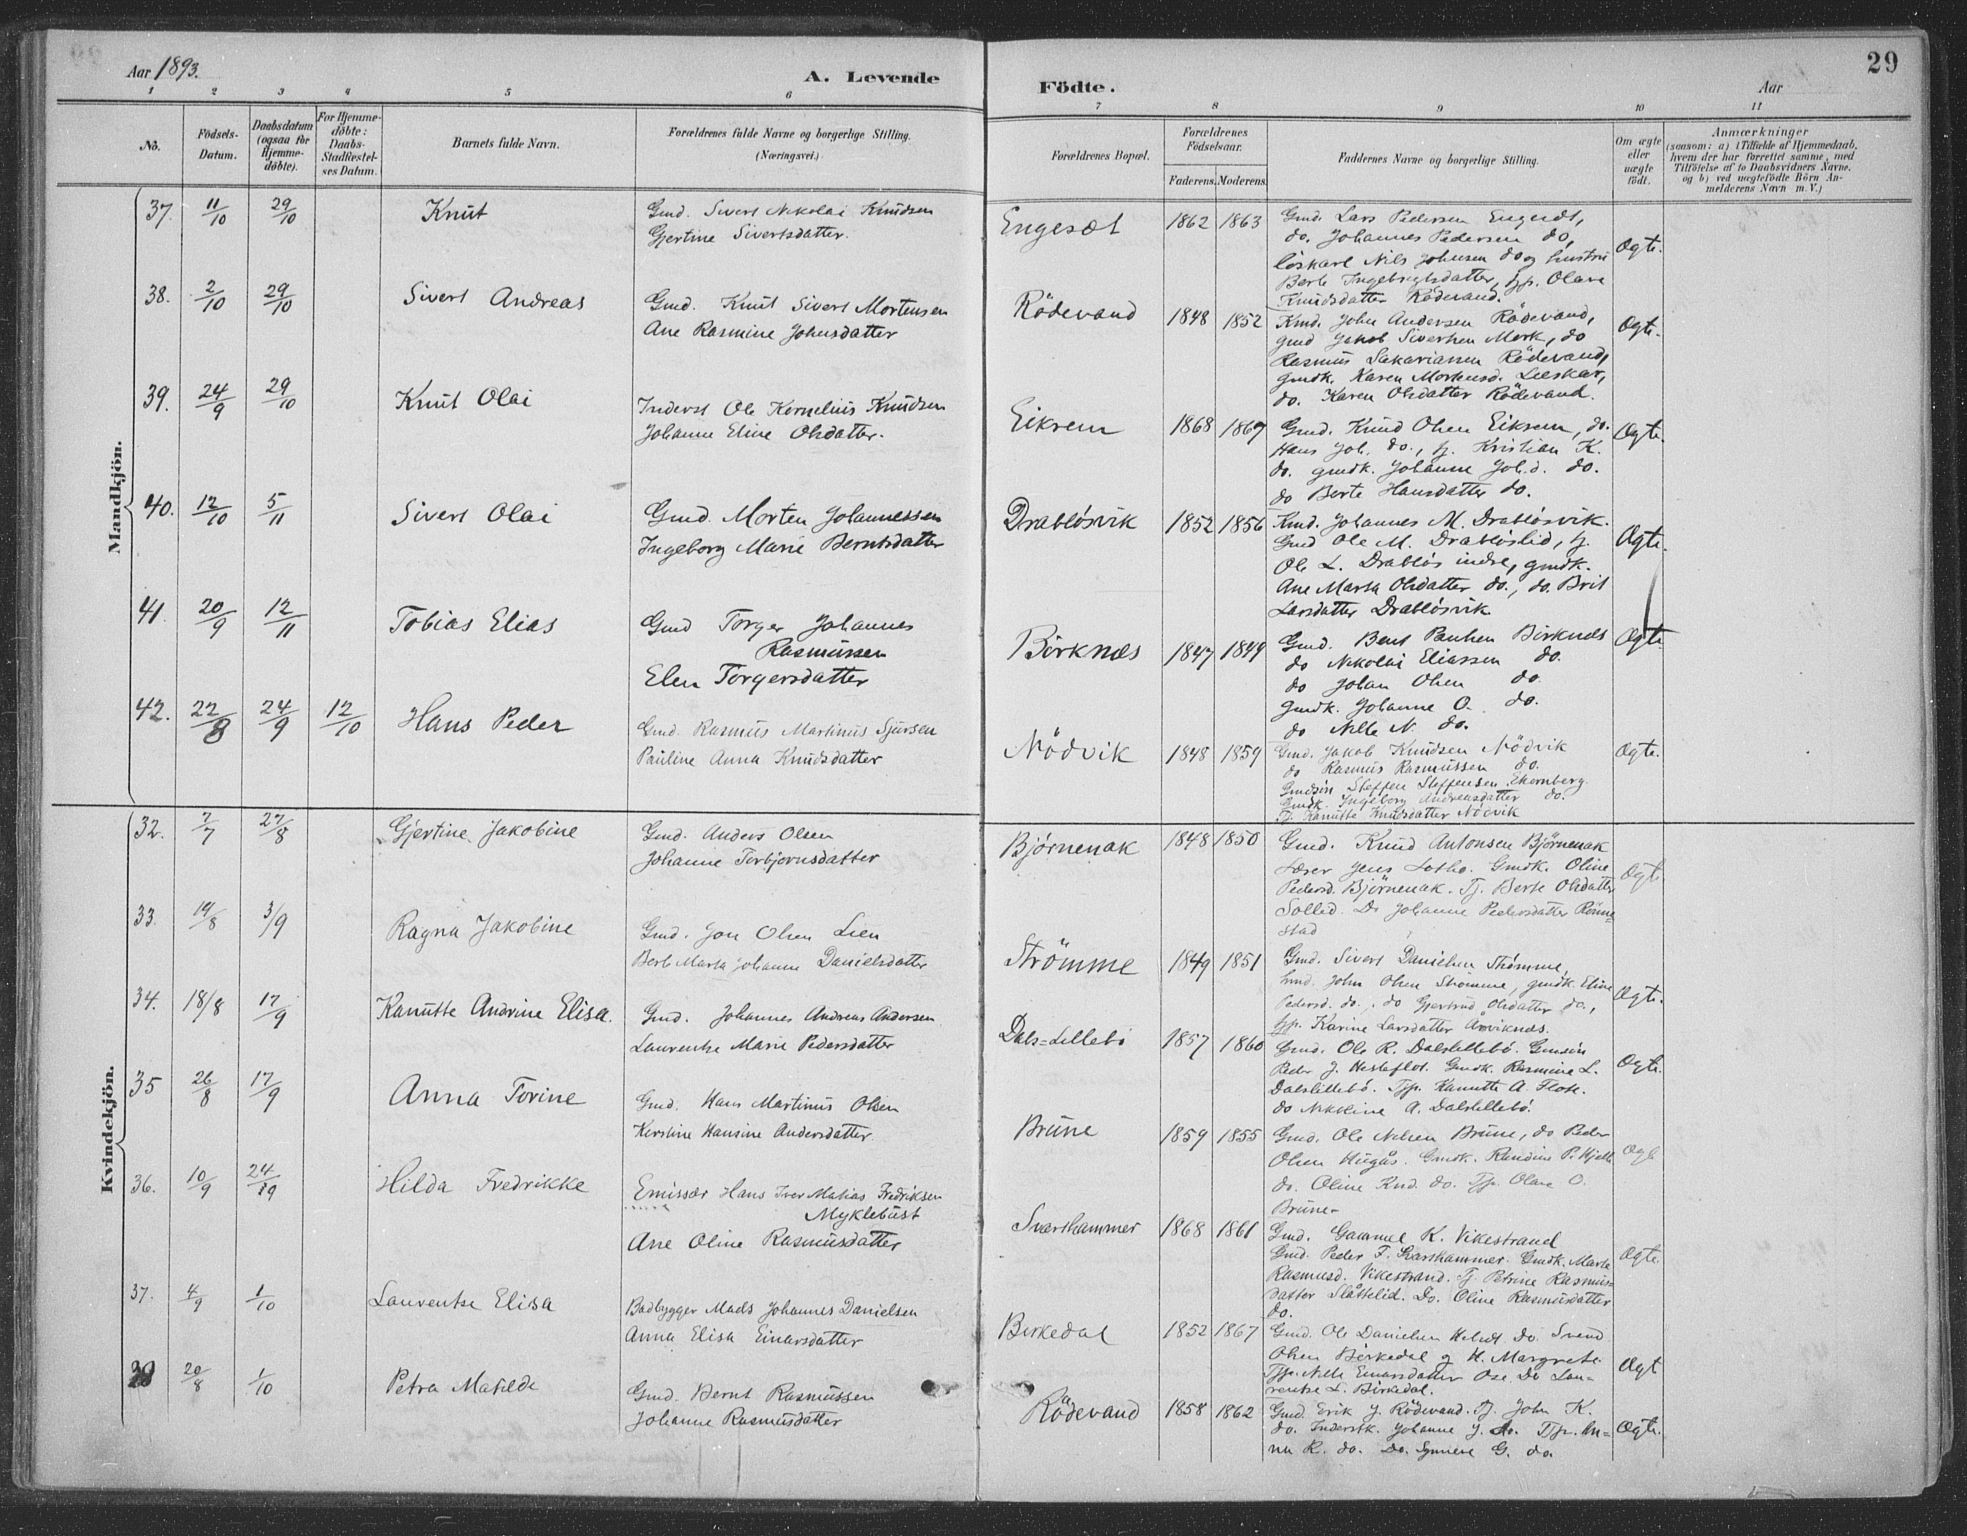 Aar 1893.
A. Levende
Födte.
Aar
29
1 2 3 4 5 6 7 8 9 10 11
No.
Födsels-Datum.
Daabsdatum (ogsaa for Hjemme-döbte).
For Hjemme-döbte: Daabs-Stadfæstel-ses Datum.
Barnets fulde Navn.
Forældrenes fulde Navne og borgerlige Stilling.
(Næringsvei.)
Forældrenes Bopæl.
Forældrenes Födselsaar.
Faderens. Moderens.
Faddernes Navne og borgerlige Stilling.
Om ægte eller uægte födt.
Anmærkninger
(saasom: a) i Tilfælde af Hjemmedaab,
hvem der har forrettet samme, med
Tilföielse af to Daabsvidners Navne,
og b) ved uægtefödte Börn An-
melderens Navn m. V.)
Mandkjön.
37. 11/10 29/10 Knut
Gmd. Sivert Nikolai Knudsen
Gjertine Sivertsdatter.
Engesæt 1862 1863
Gmd. Lars Pedersen Engesæt,
do. Johannes Pedersen do,
löskarl Nils Johnsen do og hustru
Berte Ingebrigtsdatter, pp. Olave
Knudsdatter Rödevand.
Ægte.
38. 2/10 29/10 Sivert Andreas
Gmd. Knut Sivert Mortensen
Ane Rasmine Johnsdatter
Rödevand 1848 1852
Gmd. John Andersen Rödevand,
gmd Jakob Sivertsen Mork, do
Rasmus Sakariassen Rödevand,
gmdk. Karen Mortensd. Lilleskar,
do. Karen Olsdatter Rödevand.
Ægte.
39. 24/9 29/10 Knut Olai
Inderst Ole Kornelius Knudsen
Johanne Eline Olsdatter.
Eikrem 1868 1867
Gmd. Knud Olsen Eikrem, do.
Hans Joh. do., tj. Kristian K.
do. gmdk. Johanne Joh.d. do.
do Berte Hansdatter do.
Ægte.
40. 12/10 5/11 Sivert Olai
Gmd. Morten Johannessen
Ingeborg Marie Berntsdatter
Drabløsvik 1852 1856
Gmd. Johannes M. Drabløsvik.
Gmd Ole M. Drabløslid, tj.
Ole L. Drabløs indre, gmdk.
Ane Marta Olsdatter do., do. Brit
Larsdatter Drabløsvik
Ægte.
41. 20/9 12/11 Tobias Elias
Gmd Torger Johannes
Rasmussen
Elen Torgersdatter
Birknæs 1847 1849
Gmd. Bent Paulsen Birknæs
do Nikolai Eliassen do.
do Johan Olsen do
gmdk. Johanne O. do.
do Nille N. do.
Ægte.
42. 22/8 24/9 12/10 Hans Peder
Gmd. Rasmus Martinus Sjursen
Pauline Anna Knudsdatter
Nödvik 1848 1859
Gmd. Jakob Knudsen Nödvik
do Rasmus Rasmussen do.
Gmdsön Steffen Steffensen Ekornberg.
Gmdk. Ingeborg Andreasdatter do.
Tj. Kanutte Knudsdatter Nödvik
Ægte.
Kvindekjön.
32. 7/7 27/8 Gjertine Jakobine
Gmd. Anders Olsen
Johanne Torbjornsdatter
Bjørnenak 1848 1850
Gmd. Knud Antonsen Bjørnenak
Lærer Jens Lothe. Gmdk. Oline
Pedersd. Bjørnenak. Tj. Berte Olsdatter
Sollid. Do Johanne Pedersdatter Rønne-
stad
Ægt.
33. 14/8 3/9 Ragna Jakobine
Gmd. Jon Olsen Lien
Berte Marta Johanne Danielsdatter
Strömme 1849 1851
Gmd. Sivert Danielsen Strömme,
Gmd. John Olsen Strömme, gmdk. Eline
Pedersd. do., do Gjertrud Olsdatter do.,
pp. Karine Larsdatter Aaviknes.
Ægte.
34. 18/8 17/9 Kanutte Andrine Elisa.
Gmd. Johannes Andreas Andersen
Laurentse Marie Pedersdatter
Dals-Lillebö 1857 1860
Gmd. Ole R. Dalslillebö. Gmdsön
Peder J. Hesteflot. Gmdk. Rasmine L.
Dalslillebö. Pp. Kanutte A. Flote.
do Nikoline A. Dalslillebö.
Ægte.
35 26/8 17/9 Anna Torine
Gmd. Hans Martinus Olsen
Kerstine Hansine Andersdatter.
Brune 1859 1855
Gmd. Ole Nilsen Brune, do Peder
Olsen Hugås. Gmdk. Randine P. Hjelle
do. Oline Knd. do. Pp. Olave O.
Brune-
Ægt.
36. 10/9 24/9 Hilda Fredrikke
Emissær Hans Iver Matias Fredriksen
Myklebust
Ane Oline Rasmusdatter
Svarshammer 1868 1861
Gmd. Gammel K. Vikestrand
Gmd. Peder F. Svarshammer. Gmdk. Marte
Rasmusd. Vikestrand. Tj. Petrine Rasmus-
datter Slåttelid. Do. Oline Rasmusdatter
do.
Ægte.
37. 4/9 1/10 Laurentse Elisa
Badbygger Mads Johannes Danielsen
Anna Elisa Einarsdatter
Birkedal 1852 1867
Gmd. Ole Danielsen Do Svend
Olsen Birkedal og H. Margrete.
Pp. Nille Einarsdatter Ose. Do Lau-
rentse L. Birkedal.
Ægt
38 20/8 1/10 Petra Matilde
Gmd. Bernt Rasmussen
Johanne Rasmusdatter
Rödevand 1858 1862
Gmd. Erik J. Rödevand. Tj. John K.
do. Inderstk. Johanne J. do. Pp. An-
na R. do. Do. Synneve G. do
Ægte.